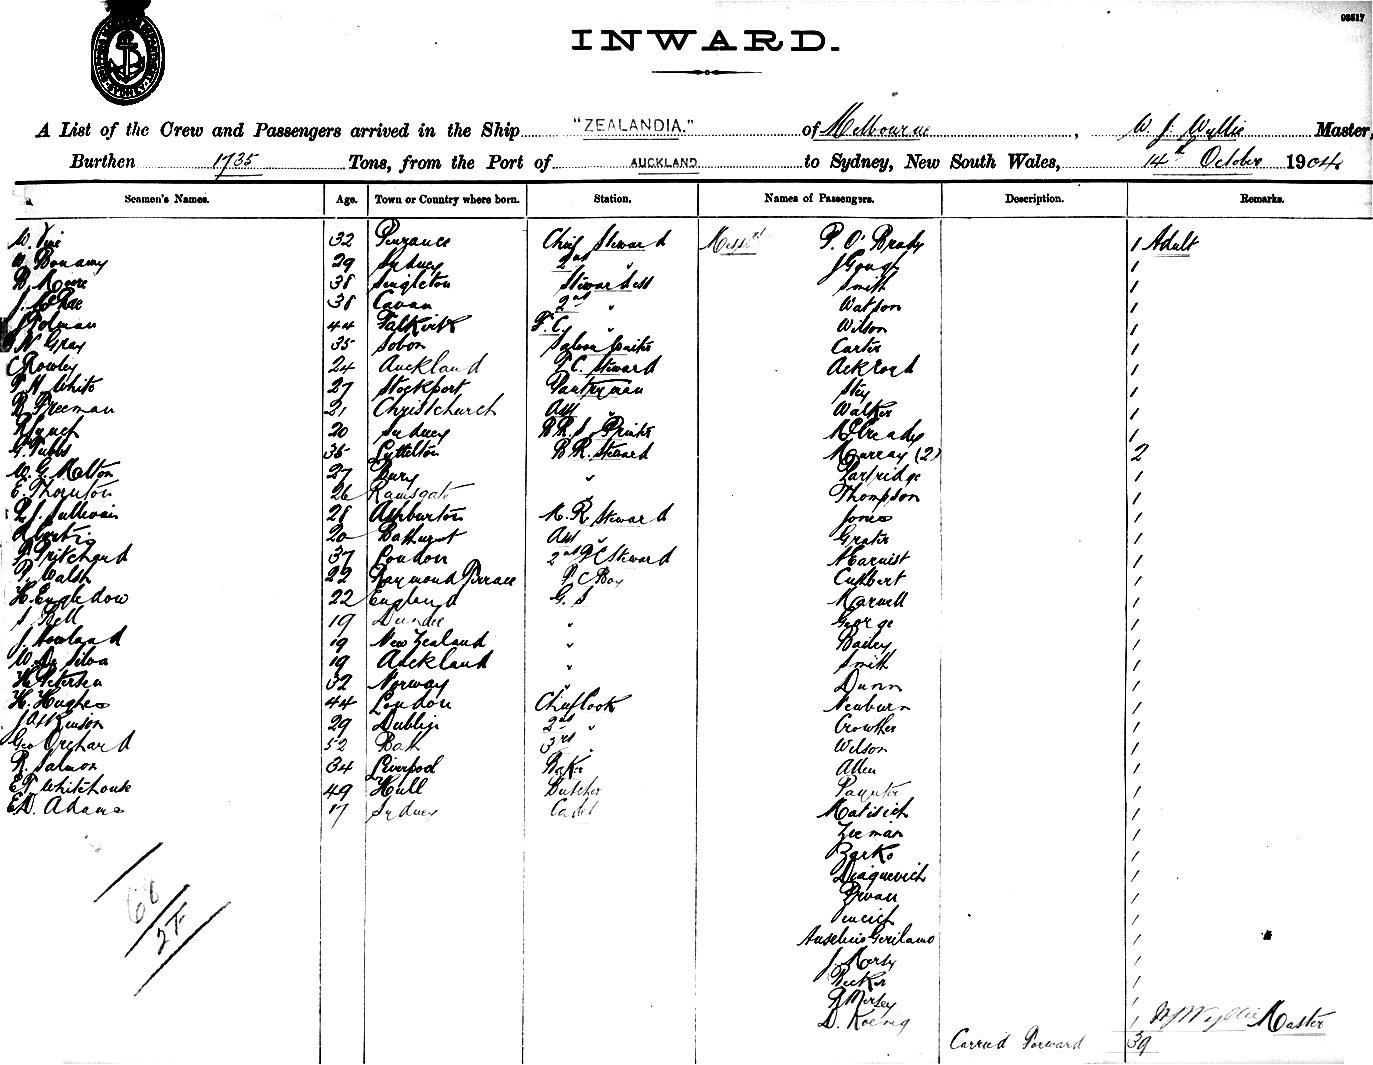 93517
INWARD.
A List of the Crew and Passengers arrived in the Ship "ZEALANDIA." of Melbourne, W. J. Wyllie Master,
Burthen 1735 Tons, from the Port of AUCKLAND to Sydney, New South Wales, 14th October 1904
Seamen's Names. Age. Town or Country where born. Station. Names of Passengers. Description. Remarks.
W. Vine 32 Penzance Chief Steward Messrs P. O'Brady 1 Adult
Bonamy 29 Sydney 2nd " J Gough 1
B Moore 38 Singleton Stewardess Smith 1
J. McRae 38 Cavan 2nd " Watson 1
J Holman 44 Falkirk F.C. " Wilson 1
N Gray 35 Saloon Waiter Carter 1
C Rowley 24 Auckland F.C. Steward Ackroyd 1
White 27 Stockport Pantryman 1
Freeman 21 Christchurch Asst " Walker 1
Lynch 20 Sydney B.R.S. Printer McCready 1
G. Tubbs 35 Lyttelton B.R. Steward Murray (2) 2
W. G. Melton 27 Bury " Partridge 1
E. Thornton 26 Ramsgate " Thompson 1
J. Sullivan 28 Ashburton M. R Steward Jones 1
20 Bathurst Asst " Grater 1
Pritchard 37 London 2nd F C Steward 1
Walsh 22 Raymond Terrace F C Boy Cuthbert 1
H. Engledow 22 England G. S 1
S Bell 19 Dundee " George 1
J. Newland 19 New Zealand " Bailey 1
W. Da Silva 19 Auckland " Smith 1
H. Petersen 32 Norway " Dunn 1
H. Hughes 44 London Chief Cook Newburn 1
J Atkinson 29 Dublin 2nd " Crowther 1
Geo Orchard 52 Bath 3rd " Wilson 1
R. Salmon 34 Liverpool Baker Allen 1
E F Whitehouse 49 Hull Butcher Paynter 1
E. D. Adams 17 Sydney Cadet Matisich 1
Zeeman 1
Barko 1
1
1
1
1
J. Mersy 1
Becker 1
Mersey 1
D. Koenig 1 W J Wyllie Master
Carried Forward 39
66
2F